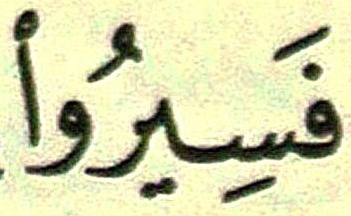 فَسِيرُوا۟